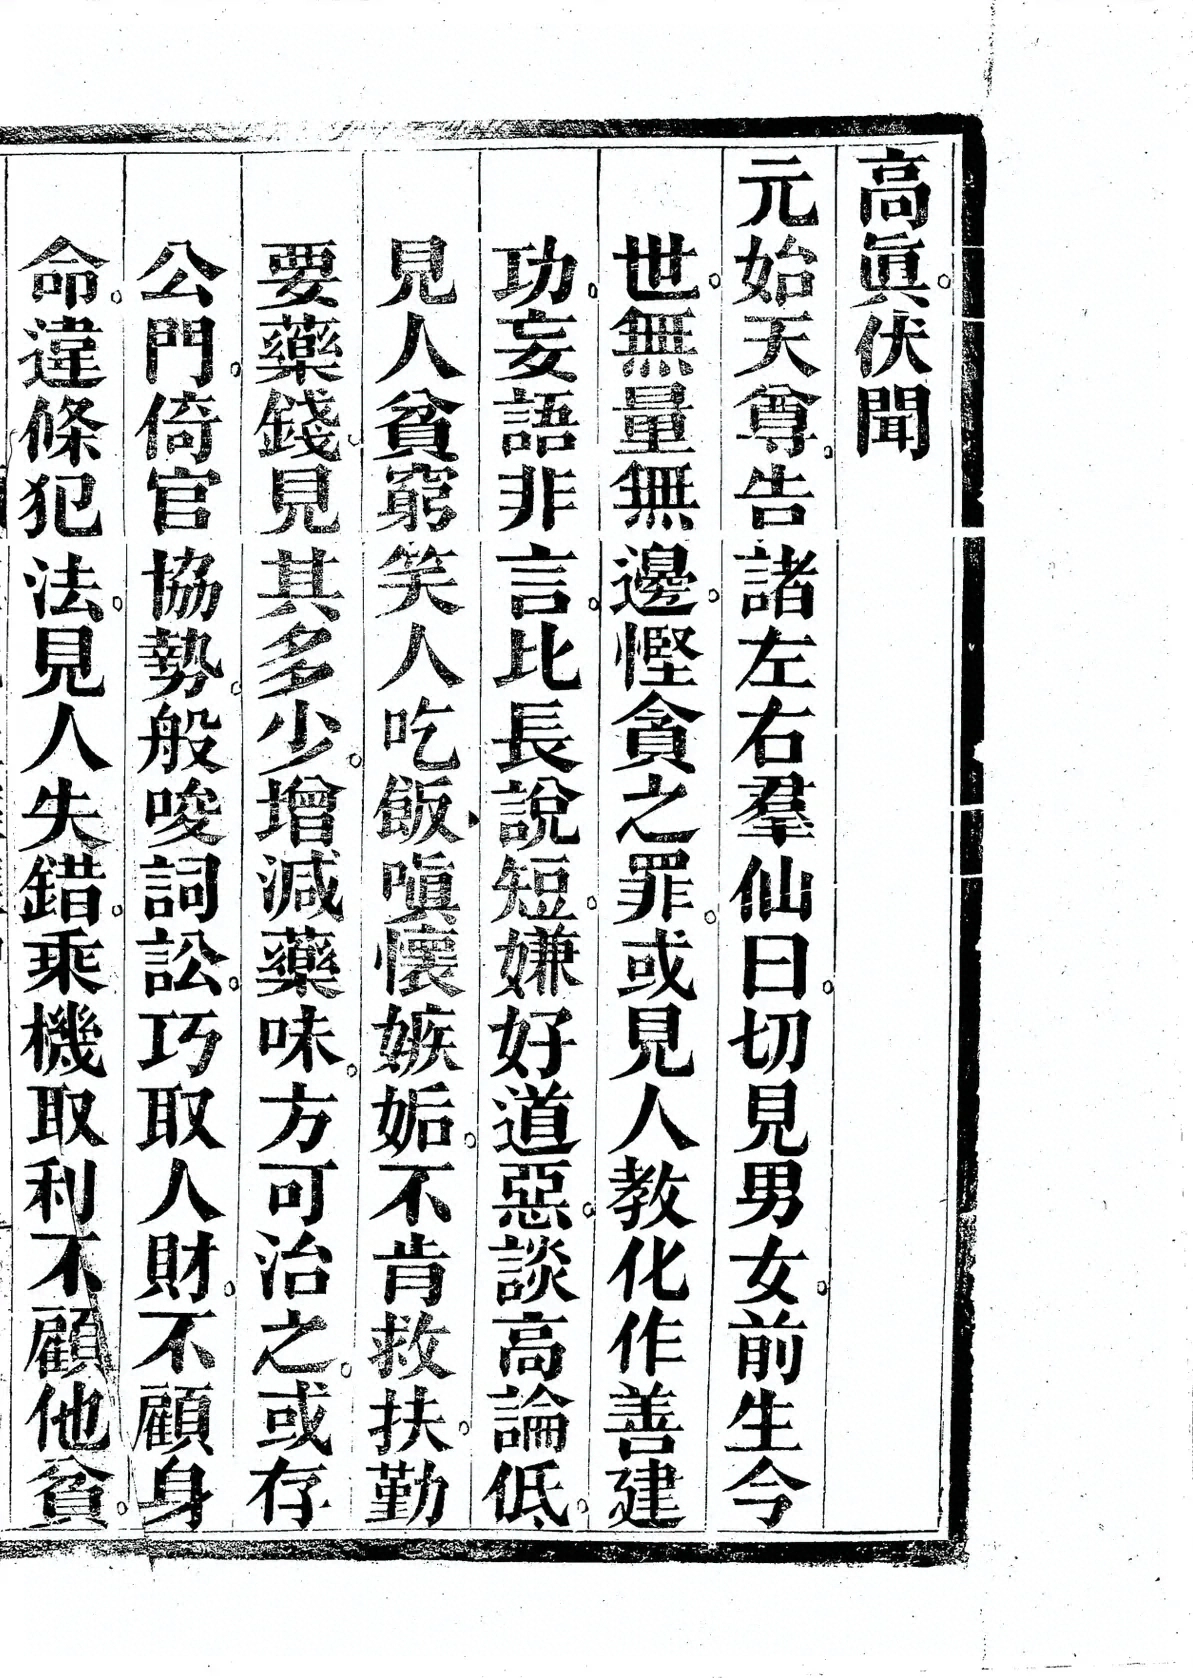 高眞。伏聞
元始天尊。告諸左右羣仙曰。切見男女。前生今
世。無量無邊。慳貪之罪。或見人教化作善建
功。妄語非言。比長說短。嫌好道惡。談高論低。
見人貧窮。笑人吃飯。嗔懷嫉妬。不肯救扶。勤
要藥錢。見其多少。增減藥味。方可治之。或存
公門。倚官協勢。般唆詞訟。巧取人財。不顧身
命。違條犯法。見人失錯。乘機取利。不顧他貧。